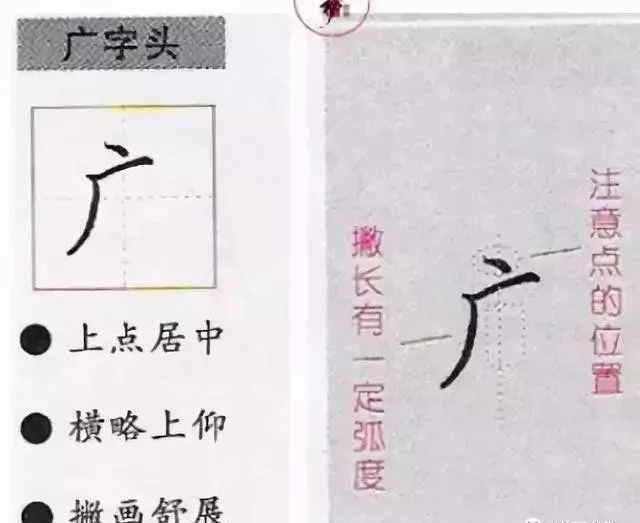 广字头
广
上点居中
横略上仰
撇画舒展
撇长有一定弧度
广
注意点的位置